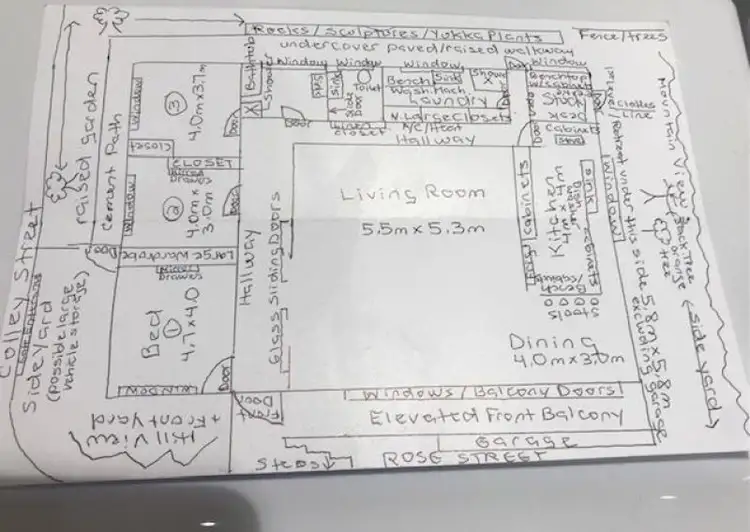 Rocks/Sculptures/Yukka Plants
Fence/trees
undercover paved/raised walkway
Window
Window
Window
Window
Door
Window
raised garden
Cement Path
Window
③
4.0m x 3.7m
Door
Closet
Bathtub
Shower
Sink
Toilet
Slide Door
Linen Closet
Door
Bench
Sink
Shower
Wash.Mach.
Laundry
N.Large Closets
A/C/Heat
Hallway
Door
Benchtop
Study
Desk
Cabinets
Door
Clothes Line
Mountain View
CLOSET
Mirror
Drawers
②
4.0m x 3.0m
Window
Door
Large Wardrobe
Door
Mirror
Drawers
Bed
①
4.7 x 4.0
WINDOW
Door
Hallway
Glass Sliding Doors
Living Room
5.5m x 5.3m
Cabinets
Frig
Kitchen
Dish washer
Sink
Cabinets
Bench
Stools
Window
under this side 5.8m x 5.8m
excluding garage
tree
(side yard)
Dining
4.0m x 3.0m
Front Door
Windows/Balcony Doors
Elevated Front Balcony
Garage
Steps
ROSE STREET
Hill View
+ Front Yard
Colley Street
Side Yard
(possible large
vehicle storage)